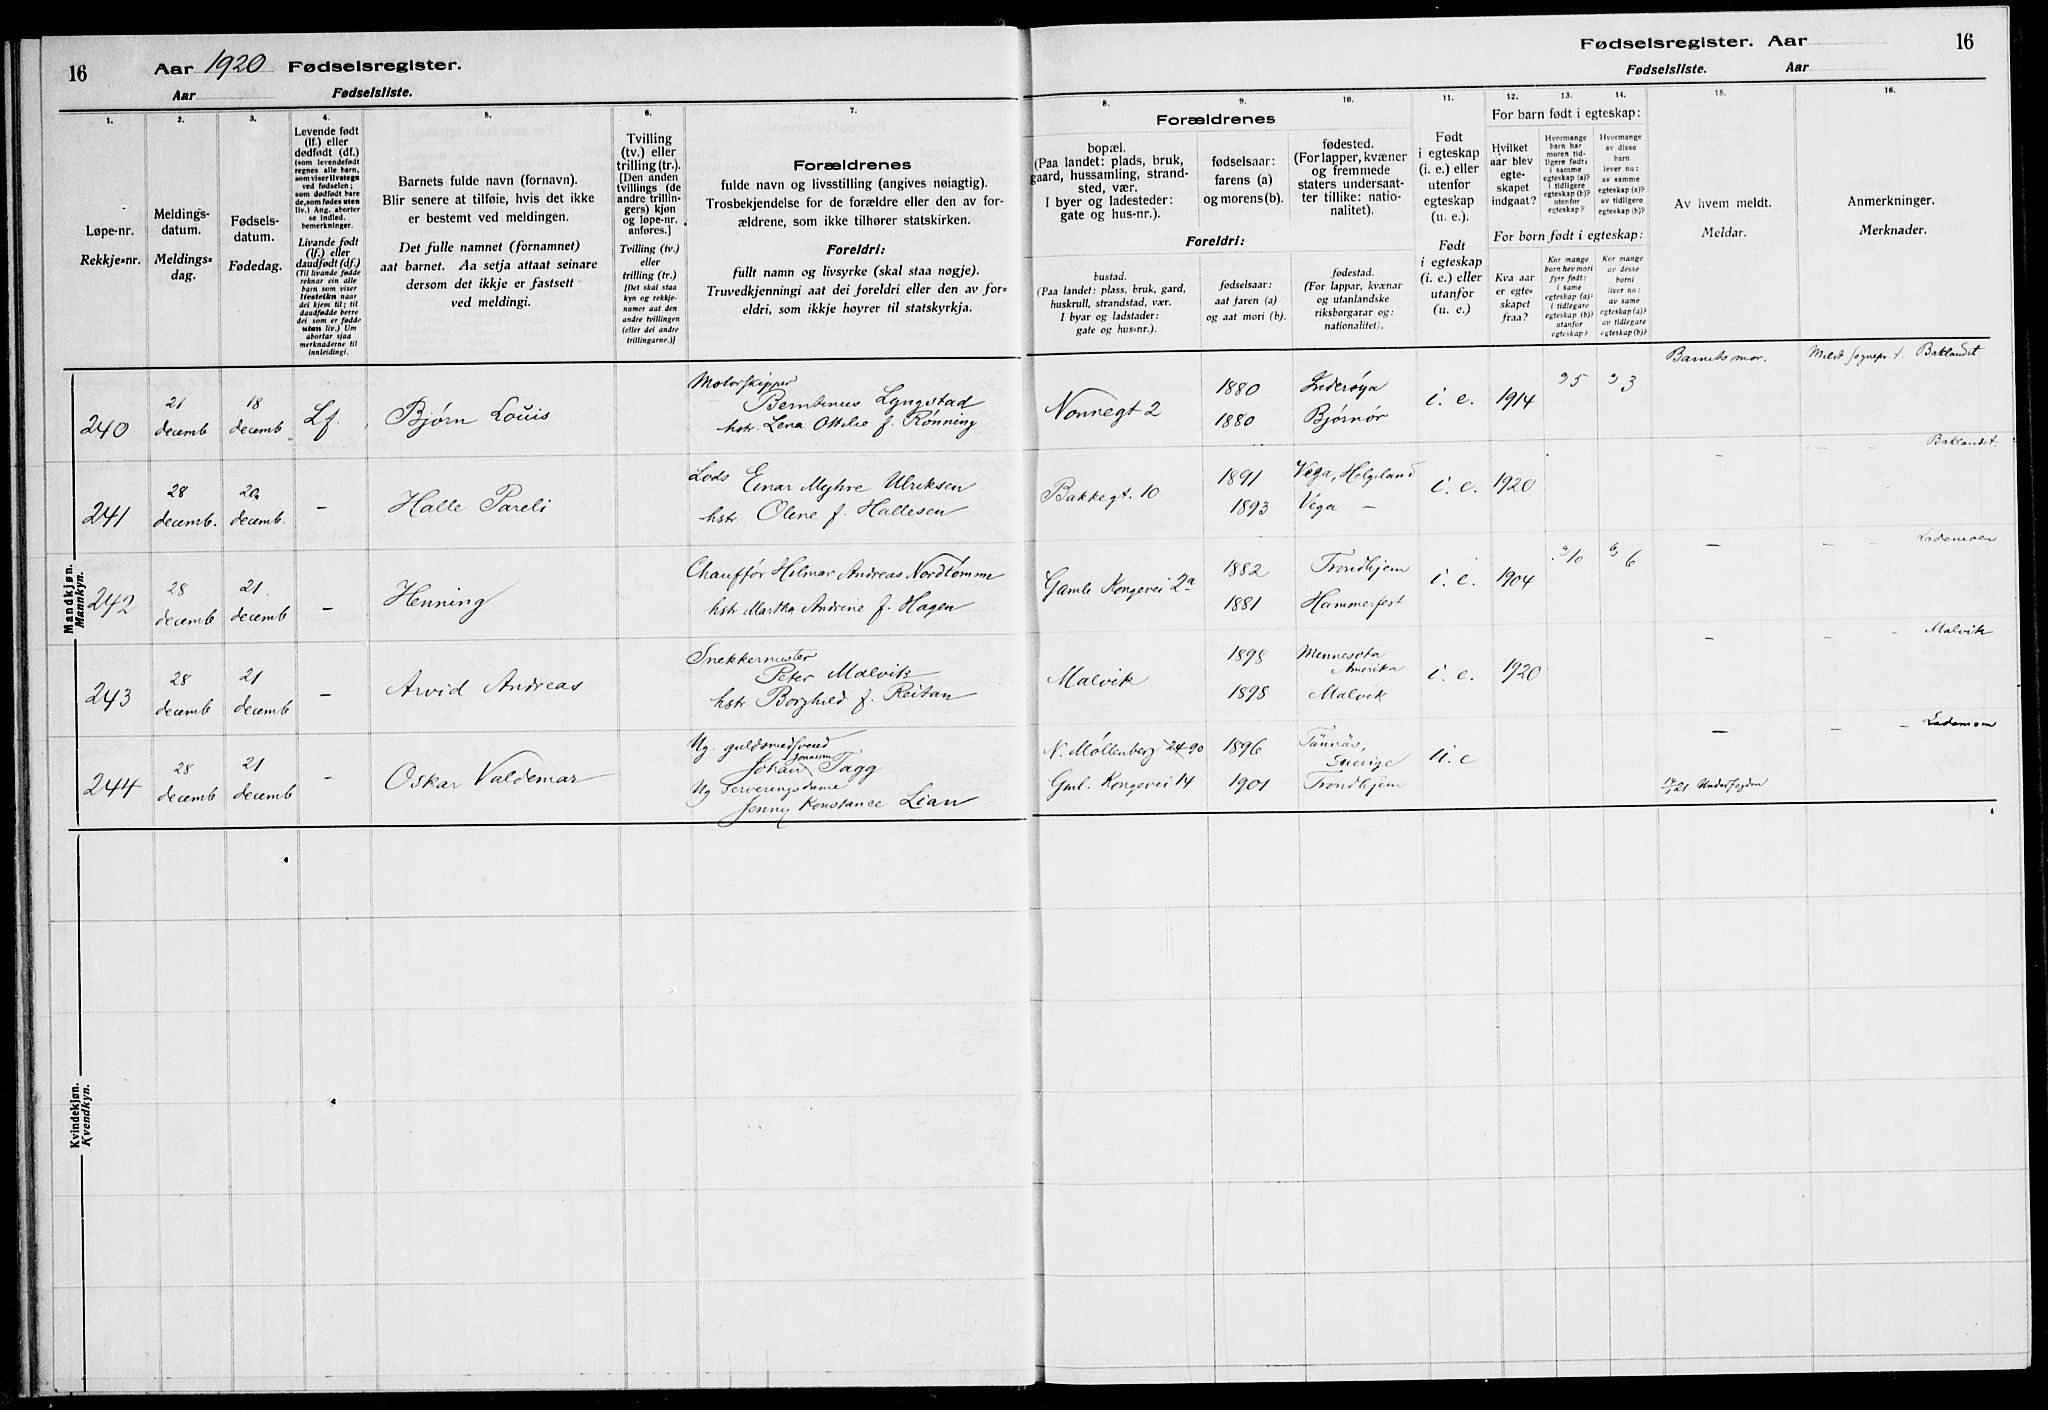 16
Aar 1920 Fødselsregister.
Aar Fødselsliste.
1.
Løpe-nr.
Rekkje=nr.
2.
Meldings-
datum.
Meldings=
dag.
3.
Fødsels-
datum.
Fødedag.
4.
Levende født
(lf.) eller
dødfødt (df.)
(som levendefødt
regnes alle barn,
som viser livstegn
ved fødselen;
som dødfødt bare
de, som fødes uten
liv.) Ang. aborter
se indled.
bemerkninger.
Livande født
(lf.) eller
daudfødt (df.)
(Til livande fødde
reknar ein alle
barn som viser
livsteikn naar
dei kjem til; til
daudfødde berre
dei som er fødde
utan liv.) Um
abortar sjaa
merknaderne til
innleidingi.
5.
Barnets fulde navn (fornavn).
Blir senere at tilføie, hvis det ikke
er bestemt ved meldingen.
Det fulle namnet (fornamnet)
aat barnet. Aa setja attaat seinare
dersom det ikkje er fastsett
ved meldingi.
6.
Tvilling
(tv.) eller
trilling (tr.).
[Den anden
tvillings (de
andre trillin-
gers) kjøn
og løpe-nr.
anføres.]
Tvilling (tv.)
eller
trilling (tr.)
[Det skal staa
kyn og rekkje-
numer aat den
andre tvillingen
(eller dei andre
trillingarne.)]
7.
Forældrenes
fulde navn og livsstilling (angives nøiagtig).
Trosbekjendelse for de forældre eller den av for-
ældrene, som ikke tilhører statskirken.
Foreldri:
fullt namn og livsyrke (skal staa nøgje).
Truvedkjenningi aat dei foreldri eller den av for-
eldri, som ikkje høyrer til statskyrkja.
Mandkjøn.
Mannkyn.
240
21
decemb
18
decemb
Lf.
Bjørn Louis
Motorskipper
Berntinus Lyngstad
hstr. Lena Ottilie f. Rønning
241
28
decemb.
20
decemb.
–
Halle Pareli
Lods Einar Myhre Ulriksen
hstr. Oline f. Hallesen
242
28
decemb
21.
decemb
–
Henning
Chauffør Hilmar Andreas Nordtømme
hstr. Martha Andrine f. Hagen
243
28
decemb
21
decemb
–
Arvid Andreas
Snekkermester
Peter Malvik
hstr. Borghild f. Reitan
244
28
decemb
21
decemb
–
Oskar Valdemar
Ug. guldsmedsvend
Jonassen
Johan Tagg
Ug Serveringsdame
Jenny Konstance Lian
Kvindekjøn.
Kvendkyn.
Fødselsregister. Aar
16
Fødselsliste. Aar
8.
Forældrenes
bopæl.
(Paa landet: plads, bruk,
gaard, hussamling, strand-
sted, vær.
I byer og ladesteder:
gate og hus-nr.).
Foreldri:
bustad.
(Paa landet: plass, bruk, gard,
huskrull, strandstad, vær.
I byar og ladstader:
gate og hus=nr.).
9.
fødselsaar:
farens (a)
og morens (b).
fødselsaar:
aat faren (a)
og aat mori (b).
10.
fødested.
(For lapper, kvæner
og fremmede
staters undersaat-
ter tillike: natio-
nalitet).
fødestad.
(For lappar, kvænar
og utanlandske
riksborgarar og:
nationalitet).
11.
Født
i egteskap
(i. e.) eller
utenfor
egteskap
(u. e.).
Født
i egteskap
(i. e.) eller
utanfor
(u. e.)
12.
For barn født i egteskap:
Hvilket
aar blev
egte-
skapet
indgaat?
For born født i egteskap:
Kva aar
er egte-
skapet
fraa?
13.
Hvormange
barn har
moren tid-
ligere født:
i samme
egteskap (a)?
i tidligere
egteskap (b)?
utenfor
egteskap?
Kor mange
born hev mori
fyrr født:
i same
egteskap (a)?
i tidlegare
egteskap (b)?
utanfor
egteskap?
14.
Hvormange
av disse
barn
lever nu:
av samme
egteskap (a)?
av tidligere
egteskap (b)?
Kor mange
av desse
borni
liver no:
av same
egteskap (a)?
av tidlegare
egteskap (b)?
15.
Av hvem meldt.
Meldar.
16.
Anmerkninger.
Merknader.
Nonnegt 2
1880
1880
Inderøya
Bjørnør
i. e.
1914
a) 5
a) 3
Barnets mor.
Meldt sognepr. t. Baklandet
Bakkegt. 10
1891
1893
Vega, Helgeland
Vega –
i. e.
1920
–
Baklandet.
Gamle Kongevei 2a
1882
1881
Trondhjem
Hammerfest
i. e.
1904
a) 10
6
–
– –
Lademoen
Malvik
1898
1898
Minnesota
Amerika
Malvik
i. e.
1920
–
– –
Malvik
N. Møllenberg 24-90
Gml. Kongevei 14
1896
1901
Tännäs,
Sverige
Trondhjem
u. e
–
– –
Lademoen
14/1 21 Underfogden